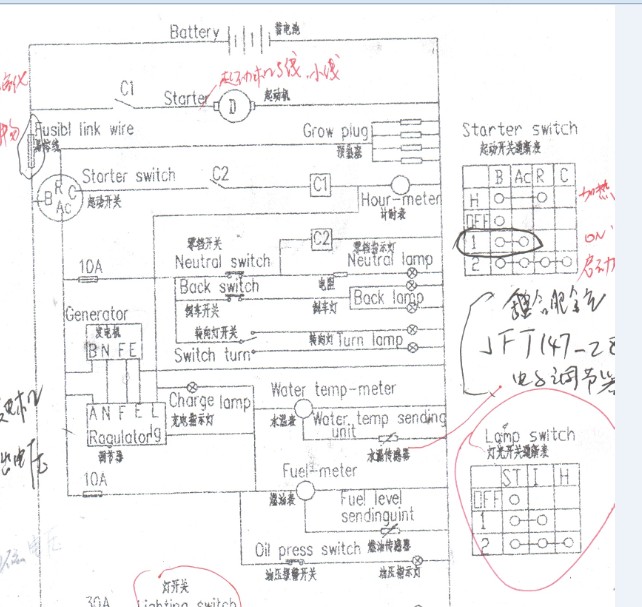 Battery 蓄电池
C1
Starter 起动机
D
Fusibl link wire
Grow plug
预热塞
Starter switch
起动开关通断表
B Ac R C
H
OFF
1
2
加热
ON
启动
B R C Ac
Starter switch
起动开关
C2
C1
Hour-meter
计时表
空档开关
C2
空档指示灯
10A
Neutral switch
Neutral lamp
Back switch
电阻
Back lamp
倒车开关
倒车灯
Generator
发电机
B N F E
转向灯开关
转向灯 Turn lamp
Switch turn
JFT147-2
电子调节
Charge lamp
充电指示灯
A N F E L
Rogulator Ig
调节器
Water temp-meter
水温表
Water temp sending
unit
水温传感器
Lamp switch
灯光开关通断表
ST I H
OFF
1
2
10A
Fuel-meter
燃油表
Fuel level
sendinguint
燃油传感器
Oil press switch
油压报警开关
油压指示灯
灯开关
30A
Lighting switch